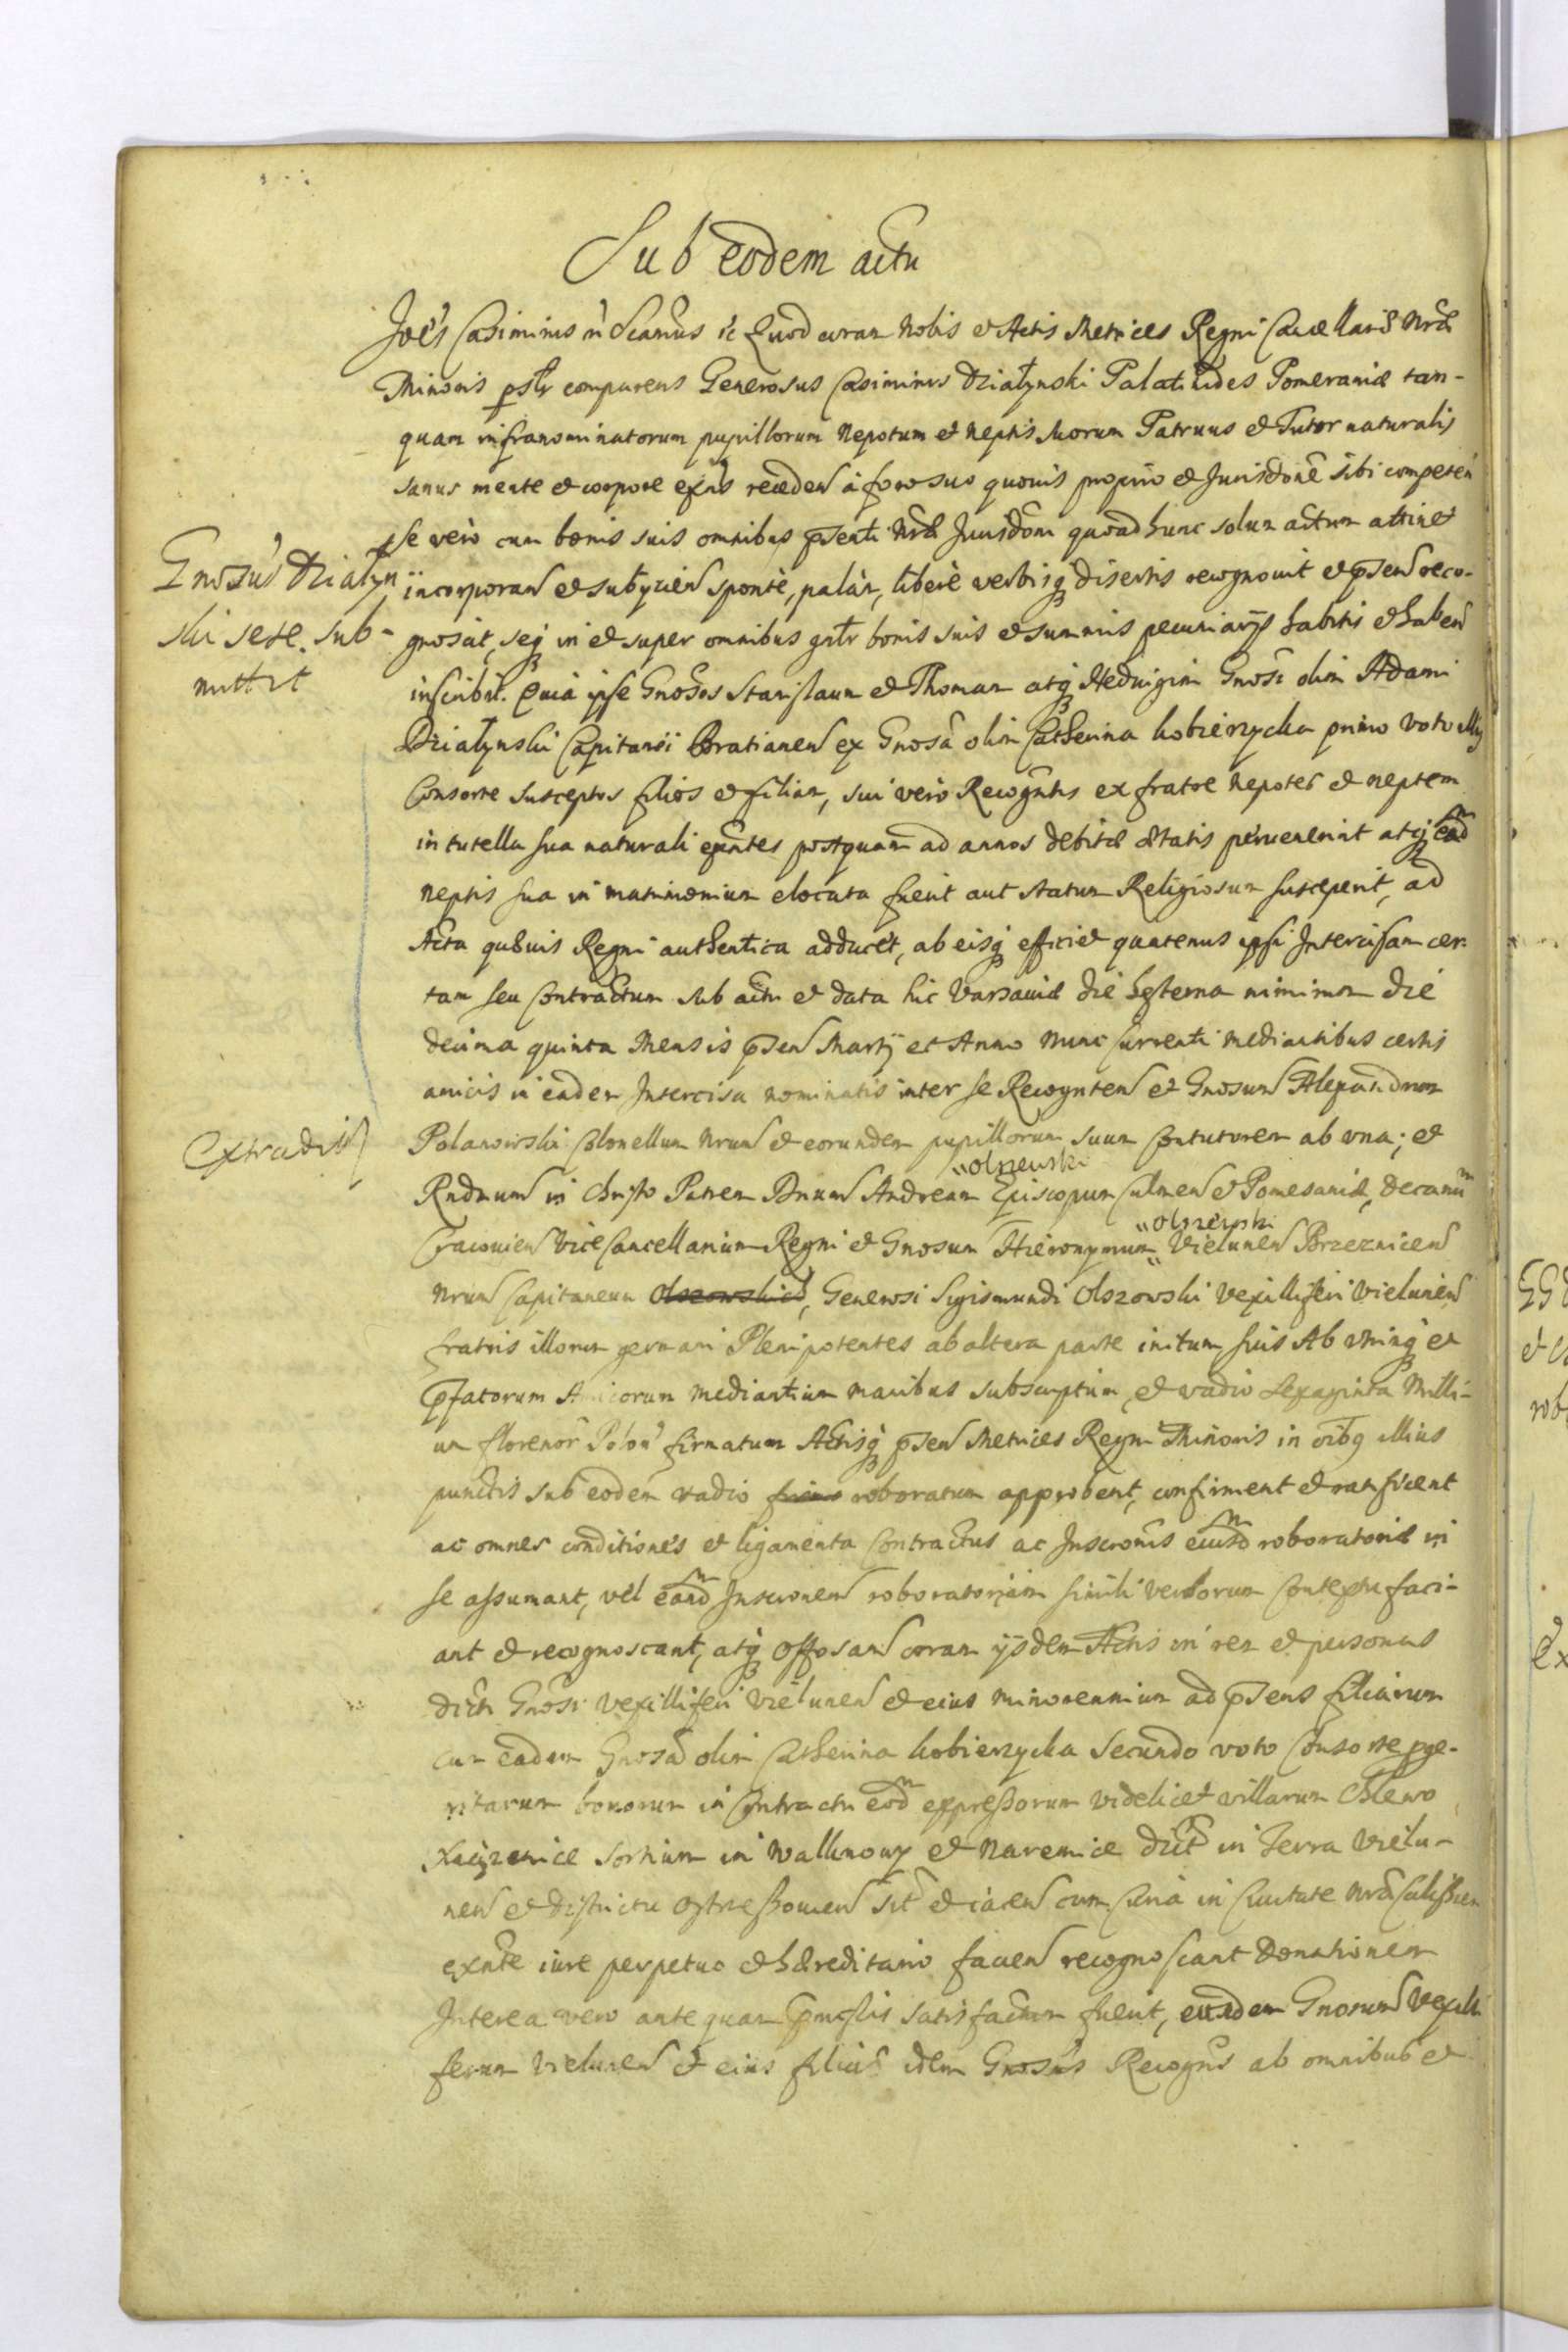 Sub eodem actu
Joēs Casimirus Quod coram Nobis et Actis Metrices Regni Cancellariæ Nræ
Minoris psltr comparens Generosus Casimirus Działynski Palatinides Pomeraniæ tan-
quam infranominatorum pupillorum Nepotum et Neptis suorum Patruus et Tutor naturalis
sanus mente et corpore exñs recedeñ à foro suo quovis proprio et Jurisdone sibi competeñ
se verò cum bonis suis omnibus psenti Nræ Jurisdoni quoad hunc solum actum attinet
Gnosus Działyn
ski sese sub-
mittit
incorporañ et subijcieñ sponte, palàm, liberè verbisq disertis recognovit et pseñ reco-
gnoscit, seq in et super omnibus gnltr bonis suis et summis pecuniarijs habitis et habeñ
inscribit. Quia ipse Gnosos Stanislaum et Thomam atq Hedvigim Gnosi olim Adami
Działynski Capitanei Bratianeñ ex Gnosa olim Catherina Kobierzycka primo voto illius
Consorte susceptos filios et filiam, sui verò Recogntis ex fratre nepotes et neptem
in tutella sua naturali exñtes postquam ad annos debitæ ætatis pervenerint atq eadm
neptis sua in matrimonium elocata fuerit aut statum Religiosum susceperit, ad
Acta quævis Regni authentica adducet, ab eisq efficiet quatenus ipsi Intercisam cer-
tam seu Contractum sub actu et data hic Varsaviæ die hesterna nimirum die
decima quinta Mensis pseñ Martij et Anno nunc currenti mediantibus certis
amicis in eadem Intercisa nominatis inter se Recognteñ et Gnosum Alexandrum
Extradit
Polanowski Colonellum Nrum et eorundem pupillorum suum contutorem ab una; et
"Olszewski
Rndmum in Christo Patrem Dnum Andream Episcopum Culmeñ et Pomesaniæ, Decanum
"Olszewski
Cracovieñ Vice Cancellarium Regni et Gnosum Hieronymum Vieluneñ Brzezniceñ
Nrum Capitaneum Olszowskie, Generosi Sigismundi Olszowski Vexilliferi Vieluneñ
fratris illorum germani Plenipotentes ab altera parte initum suis Ab utrinq et
pfatorum Amicorum mediantium manibus subscriptum, et vadio Sexaginta Milli-
um florenor Polon firmatum Actisq pseñ Metrices Regni Minoris in oibq illius
punctis sub eodem vadio roboratum approbent, confirment et ratificent
ac omnes conditiones et ligamenta Contractus ac Inscronis eiusdm roboratoriæ in
se assumant, vel eandm Inscronem roboratoriam simili verborum contextu faci-
ant et recognoscant, atq coram ijsdem Actis in rem et personas
dicti Gnosi Vexilliferi Vieluneñ et eius minorennium ad psens filiarum
cum eadem Gnosa olim Catherina Kobierzycka secundo voto Consorte pge-
nitarum bonorum in Contractu eodm expressorum videlicet villarum Chlewo
sortium in Wallknowy et Naremice dict in Terra Vielu-
neñ et districtu Ostrzessovieñ sit et iaceñ cum Curia in Civitate Nra Calissieñ
exñte iure perpetuo et hæreditario faveñ recognoscant Donationem
Interea vero antequam pmissis satisfactum fuerit, eundem Gnosum Vexilli
ferum Vieluneñ et eius filias idem Gnosus Recogns ab omnibus et